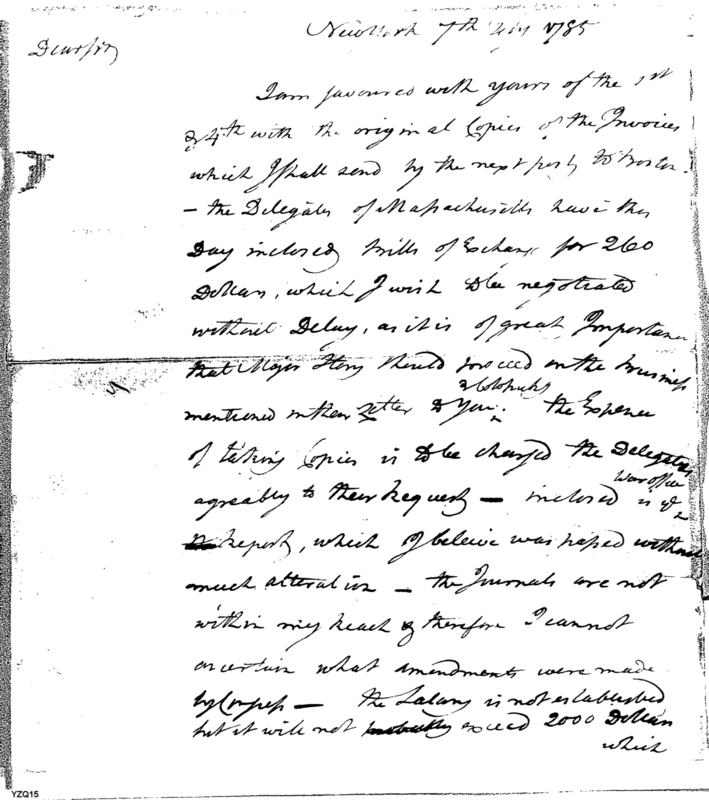 New York 7th Feby 1785
Dear sir
I am favoured with yours of the 1st
& 4th with the original Copies of the Invoices
which I shall send by the next post to Boston.
— the Delegates of Massachusetts have this
Day inclosed Bills of Exchange for 260
Dollars, which I wish to be negotiated
without Delay, as it is of great Importance
that Major should proceed on the Business
mentioned in their Letter to You. the Expence
of taking Copies is to be charged the Delegates
agreably to their Request — inclosed is ye War office
Report, which I beleive was passed without
much alteration — the Journals are not
within my Reach & therefore I cannot
ascertain what amendments were made
by Congress — the Salary is not established
but it will not probably exceed 2000 Dollars
which
YZQ15